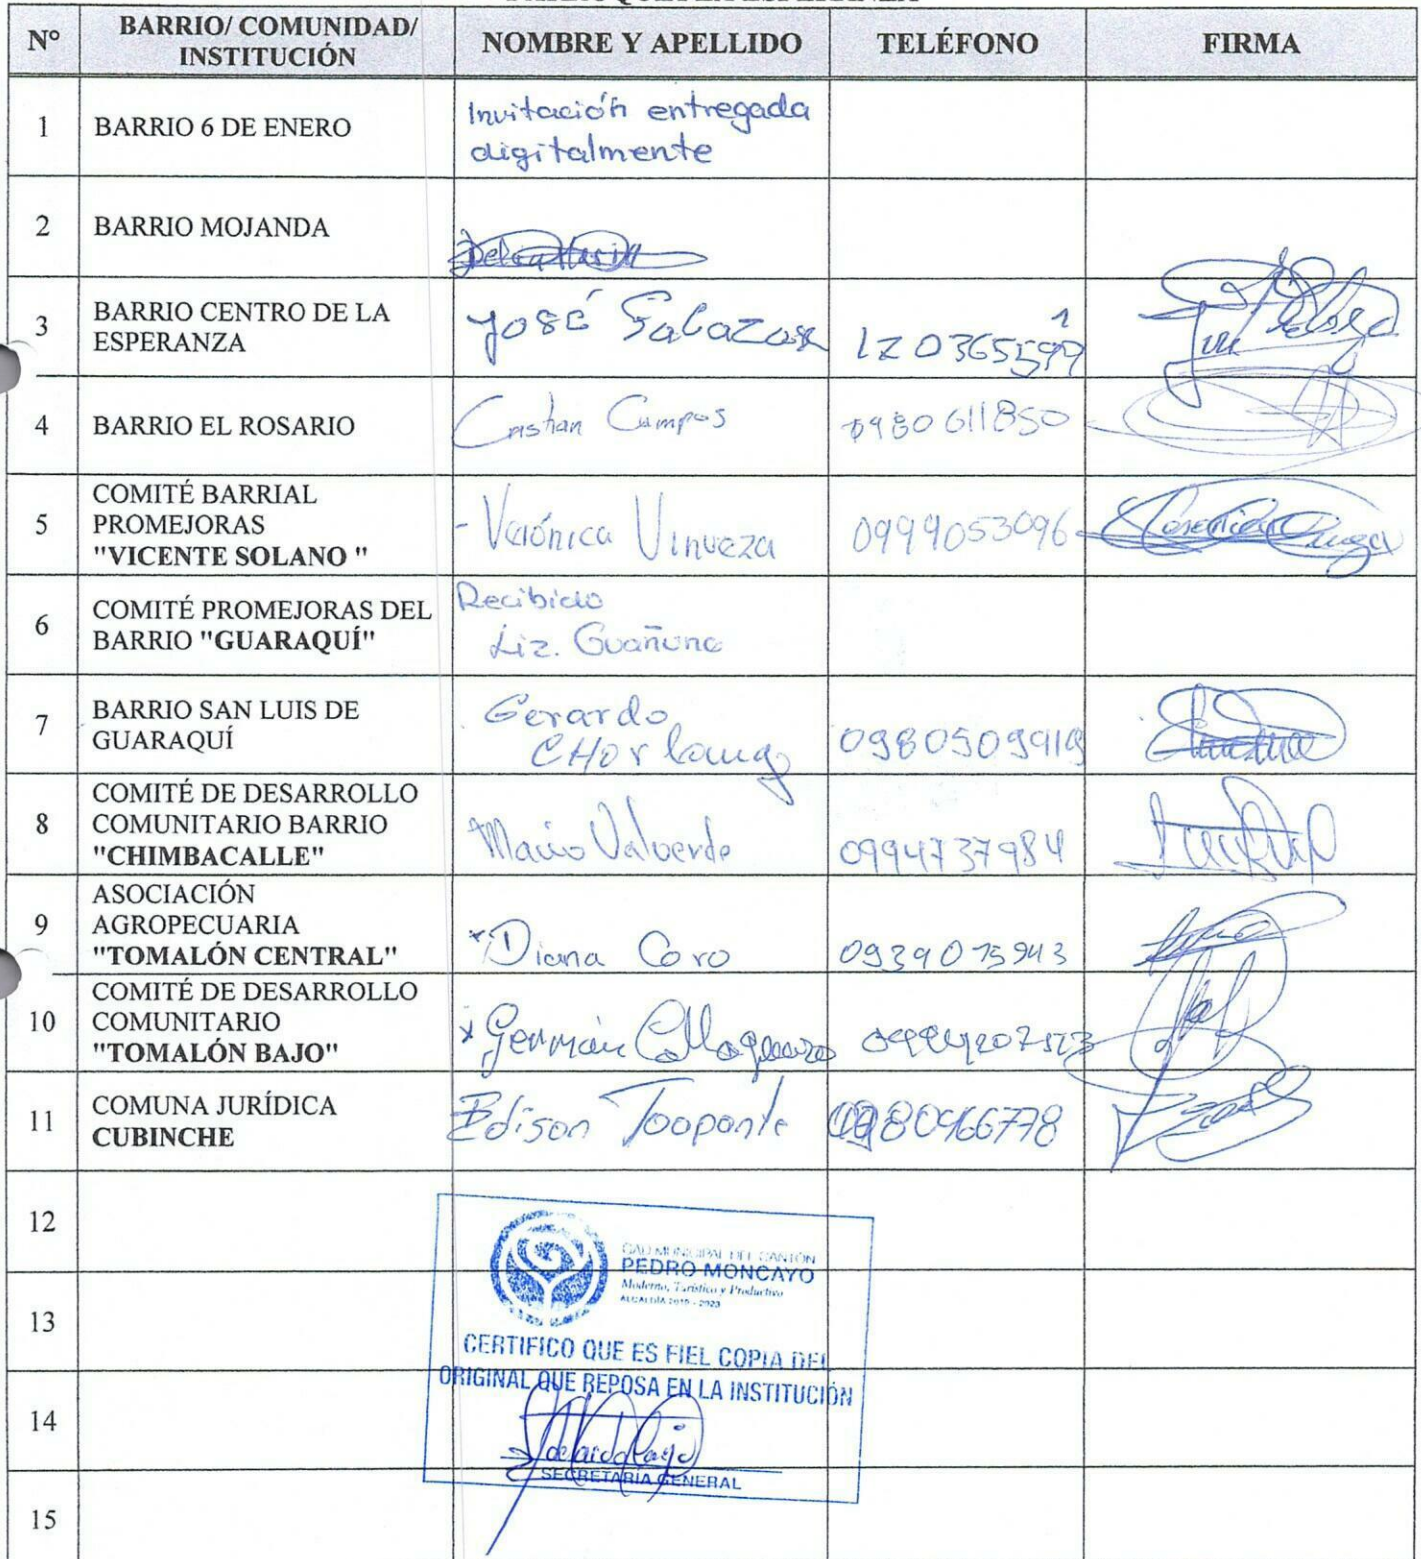 N° BARRIO/ COMUNIDAD/ INSTITUCIÓN NOMBRE Y APELLIDO TELÉFONO FIRMA
1 BARRIO 6 DE ENERO Invitación entregada
digitalmente
2 BARRIO MOJANDA
3 BARRIO CENTRO DE LA
ESPERANZA José Salazar
4 BARRIO EL ROSARIO Cristian Campos 0980611850
5 COMITÉ BARRIAL
PROMEJORAS
"VICENTE SOLANO " - Verónica Vinueza 0999053096
6 COMITÉ PROMEJORAS DEL
BARRIO "GUARAQUÍ" Recibido
Liz. Guañuna
7 BARRIO SAN LUIS DE
GUARAQUÍ Gerardo
CHorlango 0980509919
8 COMITÉ DE DESARROLLO
COMUNITARIO BARRIO
"CHIMBACALLE" Mario Valverde 0994737984
9 ASOCIACIÓN
AGROPECUARIA
"TOMALÓN CENTRAL" Diana Coro 0939075943
10 COMITÉ DE DESARROLLO
COMUNITARIO
"TOMALÓN BAJO" Germán
11 COMUNA JURÍDICA
CUBINCHE Edison Toapanta 0980966778
12
GAD MUNICIPAL DEL CANTÓN
PEDRO MONCAYO
Moderno, Turístico y Productivo
ALCALDÍA 2019 - 2023
13
CERTIFICO QUE ES FIEL COPIA DEL
ORIGINAL QUE REPOSA EN LA INSTITUCIÓN
14
SECRETARÍA GENERAL
15